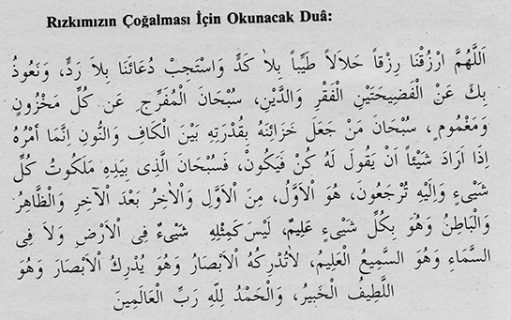 Rızkımızın Çoğalması İçin Okunacak Duâ:
اَللّٰهُمَّ ارْزُقْنَا رِزْقاً حَلَالاً طَيِّباً بِلاَ كَدٍّ وَاسْتَجِبْ دُعَائَنَا بِلاَ رَدٍّ، وَنَعُوذُ
بِكَ عَنْ الْفَضِيحَتَيْنِ الْفَقْرِ وَالدَّيْنِ، سُبْحَانَ الْمُفَرِّجِ عَنْ كُلِّ مَحْزُونٍ
وَمَغْمُومٍ، سُبْحَانَ مَنْ جَعَلَ خَزَائِنَهُ بِقُدْرَتِهِ بَيْنَ الْكَافِ وَالنُّونِ اِنَّمَا اَمْرُهُ
اِذَا اَرَادَ شَيْئاً اَنْ يَقُولَ لَهُ كُنْ فَيَكُونُ، فَسُبْحَانَ الَّذِى بِيَدِهِ مَلَكُوتُ كُلِّ
شَيْىءٍ وَاِلَيْهِ تُرْجَعُونَ، هُوَ الْاَوَّلُ، مِنَ الْاَوَّلِ وَالْاٰخِرُ بَعْدَ الْآخِرِ وَالظَّاهِرُ
وَالْبَاطِنُ وَهُوَ بِكُلِّ شَيْىءٍ عَلِيمٌ، لَيْسَ كَمِثْلِهِ شَيْىءٌ فِى الْاَرْضِ وَلاَ فِى
السَّمَاءِ وَهُوَ السَّمِيعُ الْعَلِيمُ، لاَتُدْرِكُهُ الْاَبْصَارُ وَهُوَ يُدْرِكُ الْاَبْصَارَ وَهُوَ
اللَّطِيفُ الْخَبِيرُ، وَالْحَمْدُ لِلّٰهِ رَبِّ الْعَالَمِينَ